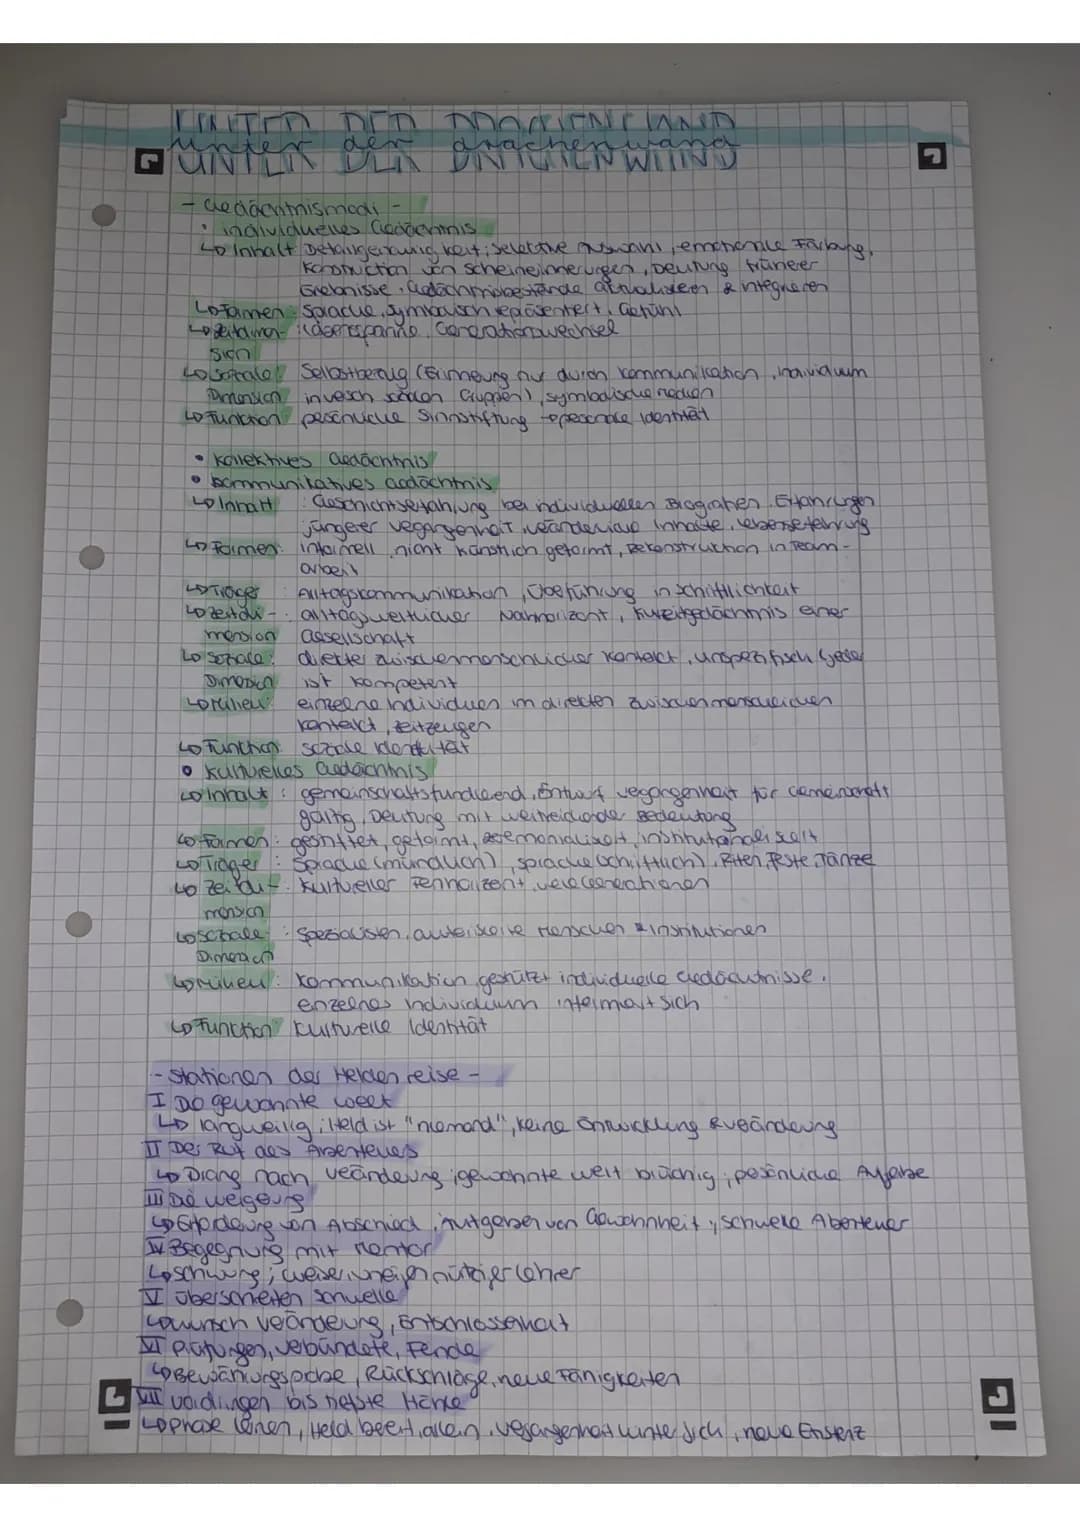 UNTER DER DRACHENWAND
unter der drachenwand
UNTER DER DRACHENWAND
- Gedächtnismodi -
• individuelles Gedächtnis
↳ Inhalt Detailgenauigkeit; selektive Auswahl, emotionale Färbung,
Konstruktion von Scheinerinnerungen, Deutung früherer
Erlebnisse, Gedächtnisbestände aktualisieren & integrieren
↳ Formen: Sprache, symbolisch repräsentiert, Gefühl
↳ Zeitdimen- : Lebensspanne, Generationswechsel
sion
↳ Soziale: Selbstbezug (Erinnerung nur durch Kommunikation, Individuum
Dimension in sozialen Gruppen), symbolische medien
↳ Funktion persönliche Sinnstiftung personale Identität
• Kollektives Gedächtnis
• kommunikatives Gedächtnis
↳ Inhalt : Geschichtserfahrung bei individuellen Biografien, Erfahrungen
jüngerer vegangenheit, veränderliche Inhalte, lebenserfahrung
↳ Formen: informell, nicht künstlich geformt, Rekonstruktion in Team-
arbeit
↳ Träger : Alltagskommunikation, Überführung in schriftlichkeit
↳ Zeitdi- : alltagsweltlicher Nahhorizont, Kurzeitgedächtnis einer
mension Gesellschaft
↳ Soziale: direkter zwischenmenschlicher Kontakt, unspezifisch (jeder
Dimesion ist kompetent
↳ Milieu: einzelne Individuen im direkten zwischenmenschlichen
Kontakt, zeitzeugen
↳ Funktion: soziale Identität
• Kulturelles Gedächtnis
↳ Inhalt : gemeinschaftsfundierend, Entwurf vegangenheit für Gemeinschaft
gültig, Deutung mit weitreichender Bedeutung
↳ Formen: gestiftet, geformt, zeremonialisiert, institutionalisiert
↳ Träger : Sprache (mündlich), sprache (schriftlich), Riten, Feste, Tänze
↳ Zeitdi- : kultureller Fernhorizont, viele Generationen
mension
↳ soziale : Spezialisten, Menschen & Institutionen
Dimesion
↳ Milieu: Kommunikation gestützt individuelle Gedächtnisse,
einzelnes Individuum informiert sich
↳ Funktion kulturelle Identität
- Stationen der Heldenreise -
I Die gewohnte welt
↳ langweilig; Held ist "niemand", keine Entwicklung & veränderung
II Der Ruf des Abenteuers
↳ Drang nach veränderung; gewohnte welt brüchig; persönliche Aufgabe
III Die weigerung
↳ Erforderung von Abschied, Aufgeben von Gewohnheit, schwelle Abenteuer
IV Begegnung mit Mentor
↳ schwung; weiser, uneigennütziger Lehrer
V überschreiten schwelle
↳ wunsch veränderung, Entschlossenheit
VI Prüfungen, verbündete, Feinde
↳ Bewährungsprobe, Rückschläge, neue Fähigkeiten
VII vordringen bis tiefste Höhle
↳ phase lernen, Held bereit, allein, vegangenheit hinter sich, neue Existenz